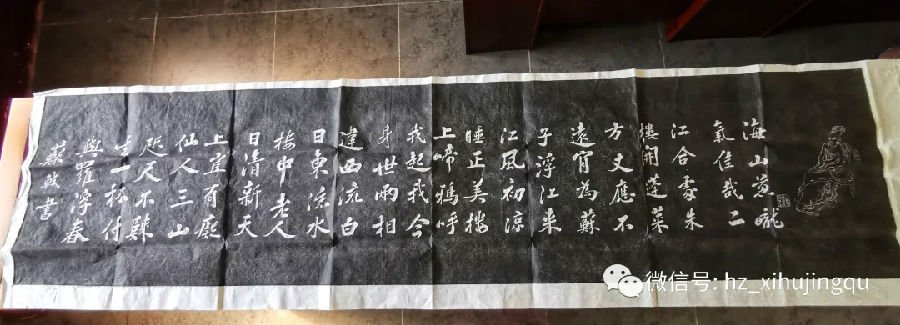 海山蔥曨
氣佳哉二
江合處朱
樓開蓬萊
方丈應不
遠肯為蘇
子浮江来
江風初凉
睡正美樓
上啼鴉呼
我起我今
身世兩相
違西流白
日東流水
樓中老人
日清新天
上豈有癡
仙人三山
咫尺不歸
去一杯付
與羅浮春
蘇軾書
微信号: hz_xihujingqu